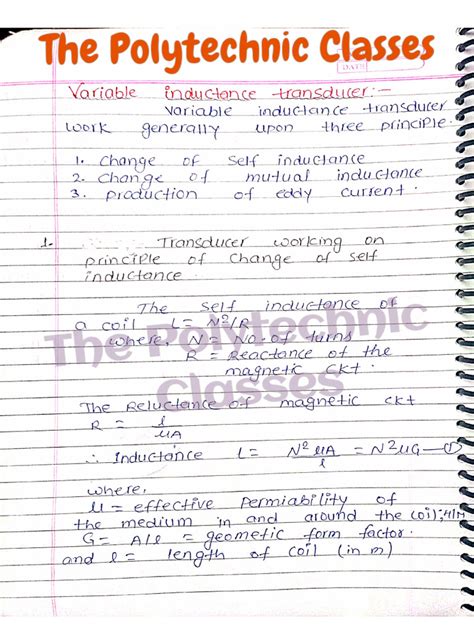 The Polytechnic Classes
DATE
Variable inductance transducer:-
Variable inductance transducer
work generally upon three principle.
1. Change of Self inductance
2. Change of mutual inductance
3. production of eddy current.
1. Transducer working on
principle of Change of self
inductance
The Self inductance of
a coil L= N²/R
where, N = No. of turns
R = Reactance of the
magnetic ckt.
The Reluctance of magnetic ckt
R = l/μA
∴ Inductance L = N²μA/l = N²μG —①
where,
μ = effective Permiability of
the medium in and around the coil;
G = A/l = geometic form factor.
and l = length of coil (in m)
The Polytechnic
Classes